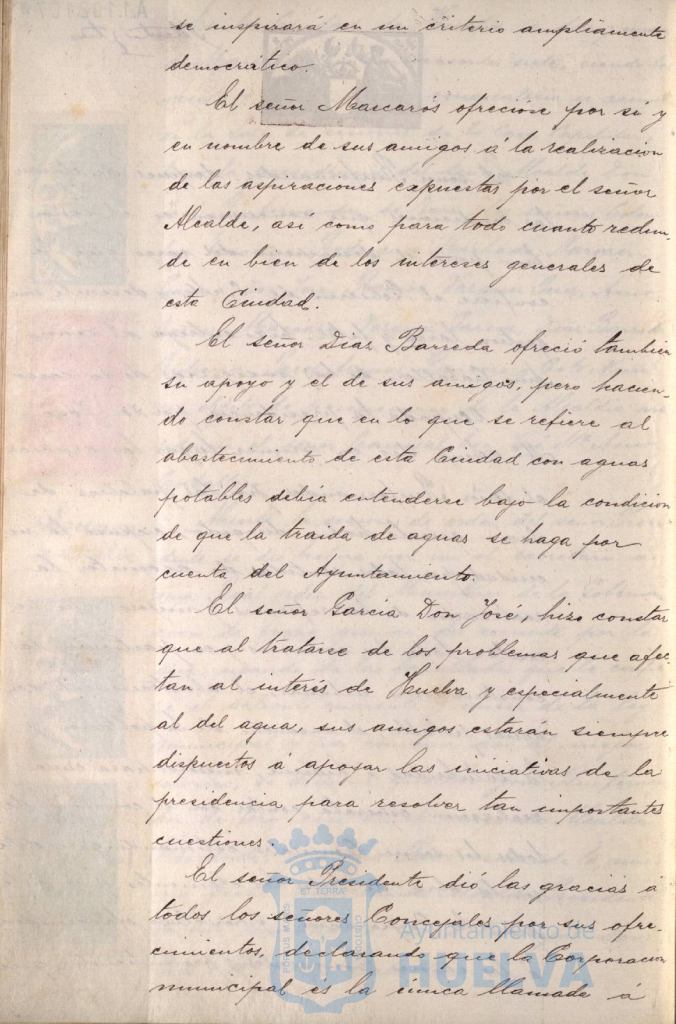 se inspirará en un criterio ampliamente
democrático.
El señor Mascarós ofrecióse por sí y
en nombre de sus amigos á la realizacion
de las aspiraciones expuestas por el señor
Alcalde, así como para todo cuanto redun-
de en bien de los intereses generales de
esta Ciudad.
El señor Diaz Barreda ofreció tambien
su apoyo y el de sus amigos, pero hacien-
do constar que en lo que se refiere al
abastecimiento de esta Ciudad con aguas
potables debia entenderse bajo la condicion
de que la traida de aguas se haga por
cuenta del Ayuntamiento.
El señor Garcia Don José, hizo constar
que al tratarse de los problemas que afec-
tan al interés de Huelva y especialmente
al del agua, sus amigos estarán siempre
dispuestos á apoyar las iniciativas de la
presidencia para resolver tan importantes
cuestiones.
El señor Presidente dió las gracias á
todos los señores Concejales por sus ofre-
cimientos, declarando que la Corporacion
municipal es la única llamada á
ET TERRA
PORTUS MARIS
CUSTODIA
Ayuntamiento de
HUELVA